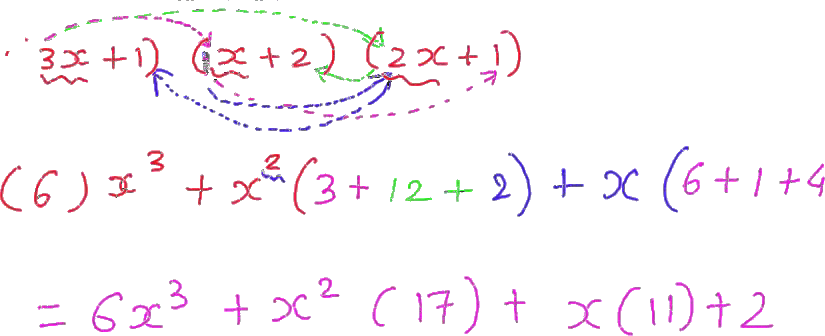 3x + 1) (x + 2) (2x + 1)
(6) x³ + x² (3 + 12 + 2) + x (6 + 1 + 4
= 6x³ + x² (17) + x (11) + 2